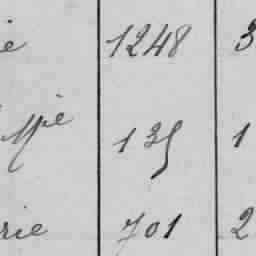 ie 1248 3
Mie 135 1
rie 701 2